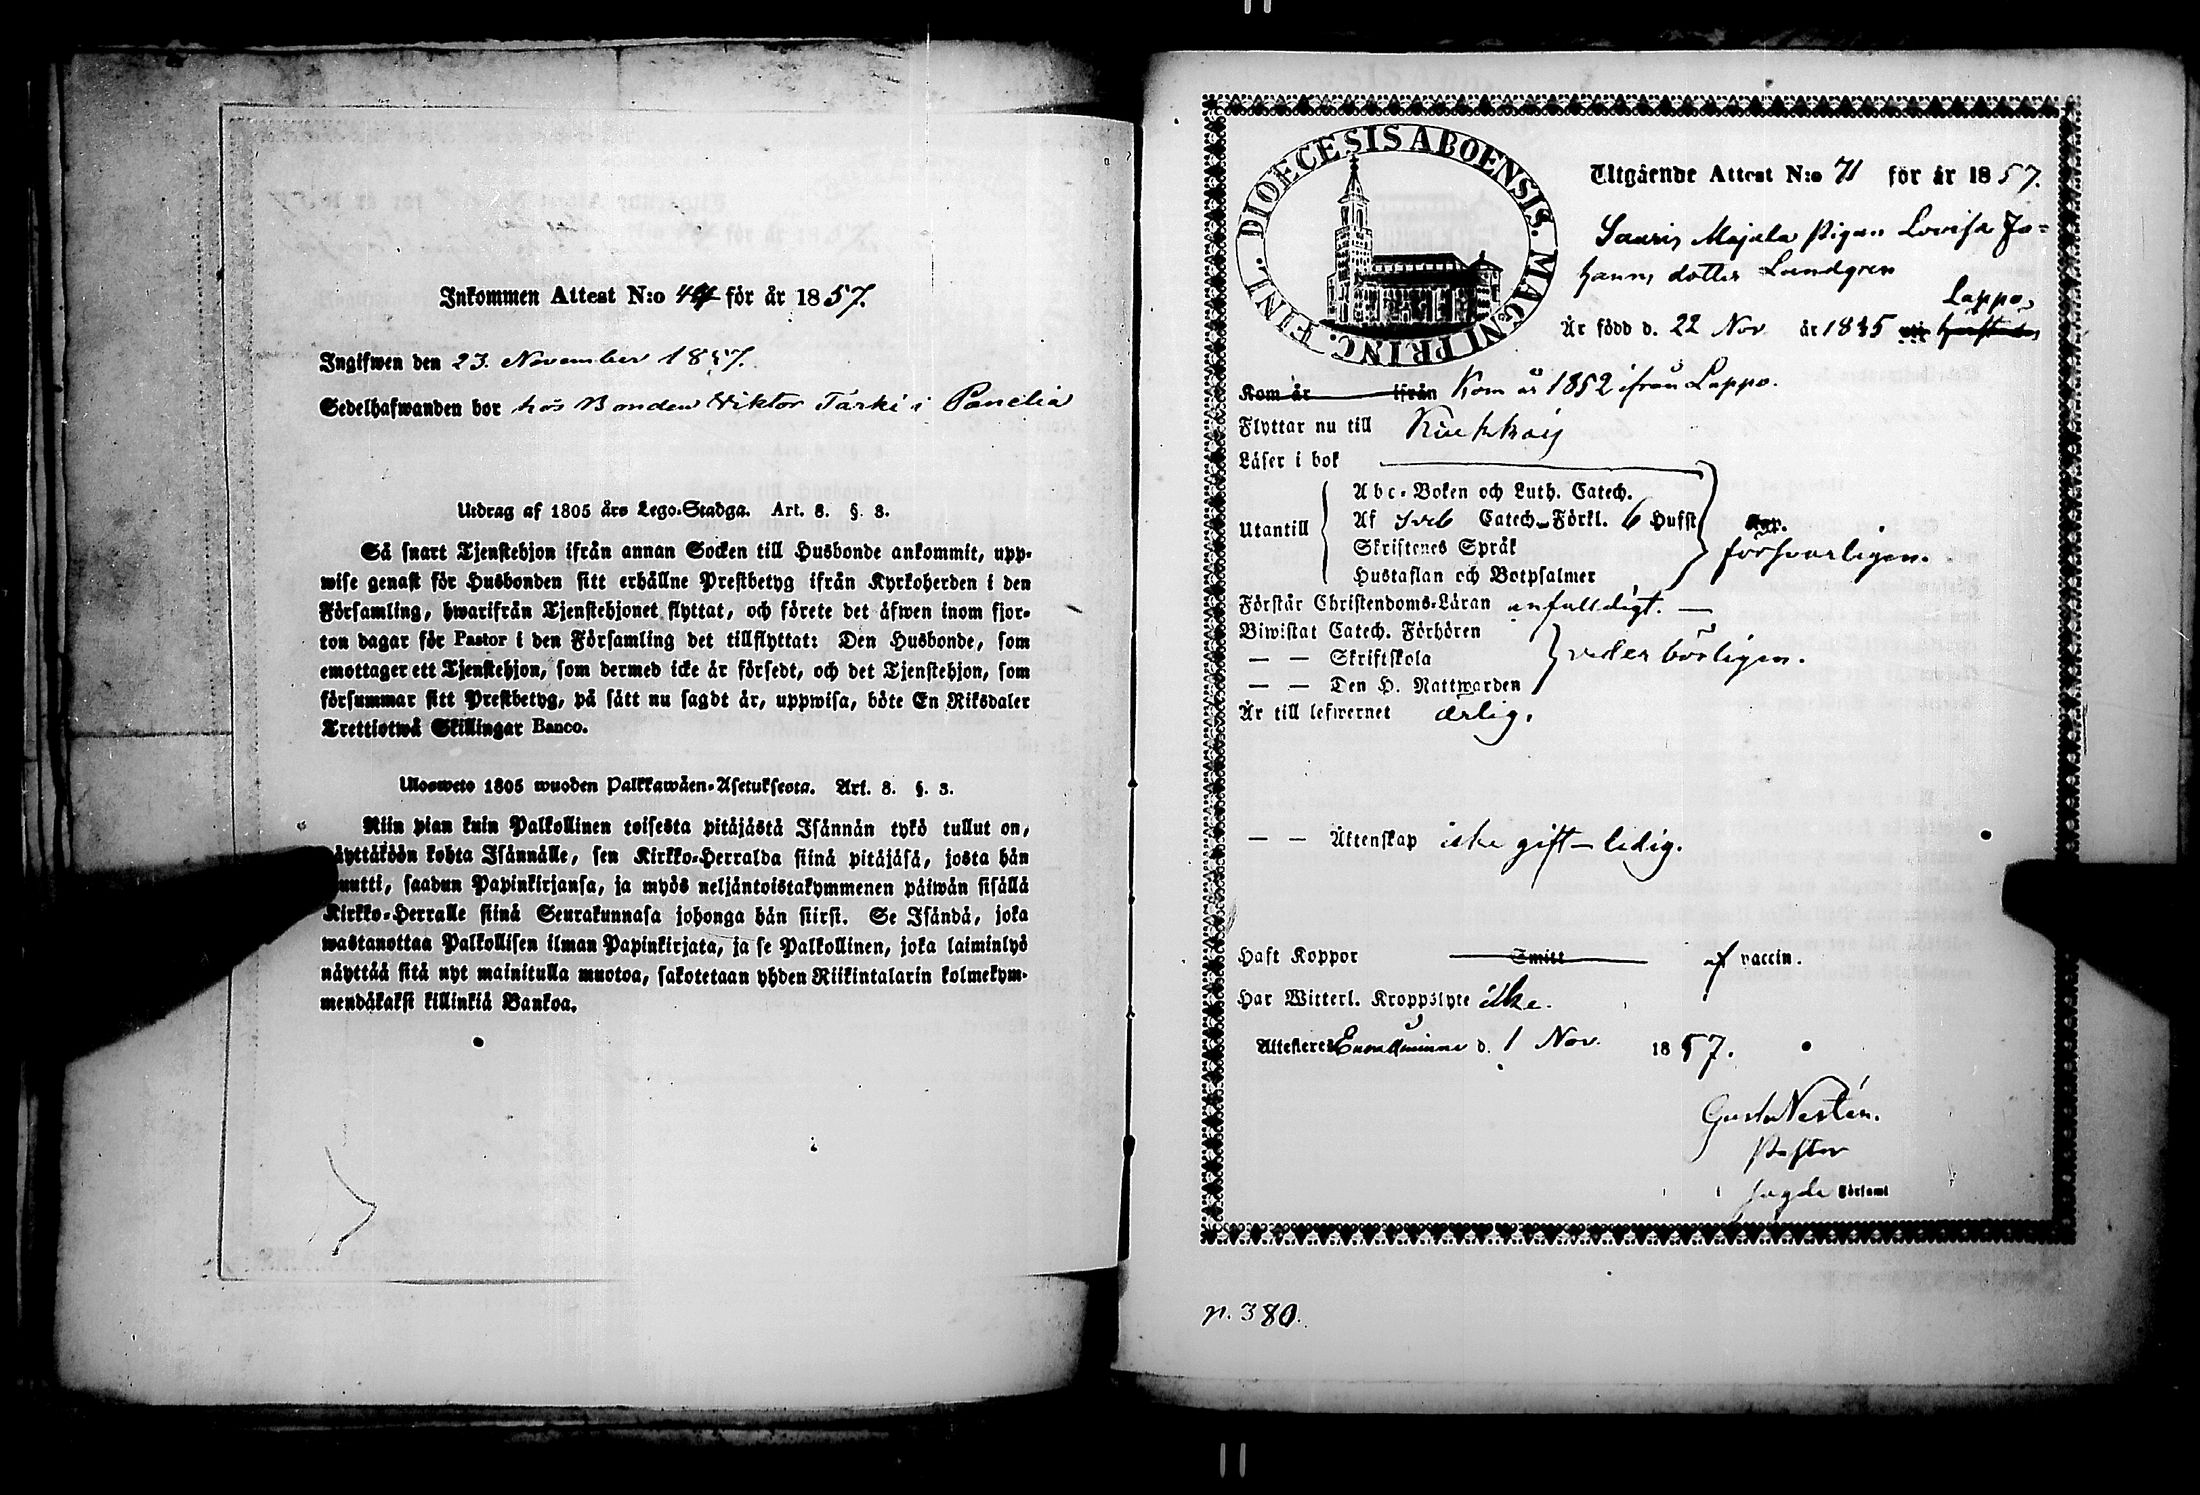 Inkommen Attest N:o 44 för år 1857.
Ingifwen den 23. November 1857.
Sedelhafwanden bor hos Bonden Wiktor Tarki i Panelia
Utdrag af 1805 års Lego-Stadga. Art. 8. §. 3.
Så snart Tjenstehjon ifrån annan Socken till Husbonde ankommit, upp-
wise genast för Husbonden sitt erhållne Prestbetyg ifrån Kyrkoherden i den
Församling, hwarifrån Tjenstehjonet flyttat, och förete det äfwen inom fjor-
ton dagar för Pastor i den Församling det tillflyttat: Den Husbonde, som
emottager ett Tjenstehjon, som dermed icke är försedt, och det Tjenstehjon, som
försummar sitt Prestbetyg, på sätt nu sagdt är, uppwisa, böte En Riksdaler
Trettiotwå Skillingar Banco.
Ulosweto 1805 wuoden Palkkawäen-Asetuksesta. Art. 8. §. 3.
Niin pian kuin Palkollinen toisesta pitäjästä Isännän tykö tullut on,
näyttäköön kohta Isännälle, sen Kirkko-Herralda siinä pitäjäsä, josta hän
muutti, saadun Papinkirjansa, ja myös neljäntoistakymmenen päiwän sisällä
Kirkko-Herralle siinä Seurakunnasa johonga hän siirst. Se Isändä, joka
wastanottaa Palkollisen ilman Papinkirjata, ja se Palkollinen, joka laiminlyö
näyttää sitä nyt mainitulla muotoa, sakotetaan yhden Riikintalarin kolmekym-
mendäkaksi killinkiä Bankoa.
DIOECESIS ABOENSIS. MAGNI PRINC. FINL.
Utgående Attest N:o 71 för år 1857.
Sauris Majala Pigan Lovisa Jo-
hanns dotter Lundgren
Lappo,
Är född d. 22 Nov år 1835 uti
Kom år ifrån Kom år 1852 ifrån Lappo.
Flyttar nu till Kiukkais
Läser i bok
Abc-Boken och Luth. Catech.
Utantill Af Sveb Catech. Förkl. 6 Hufst. Kap.
Skriftenes Språk försvarligen.
Hustaflan och Botpsalmer
Förstår Christendoms-Läran enfalldigt.
Biwistat Catech. Förhören
— — Skriftskola vederbörligen.
— — Den H. Nattwarden
Är till lefwernet ærlig.
— — Äktenskap icke gift – ledig.
Haft Koppor Smitt af vaccin.
Har Witterl. Kroppslyte icke.
Attesteres Euraminne d. 1 Nov. 1857.
Gust. Nestén.
Pastor
sagde Församl
p. 380.